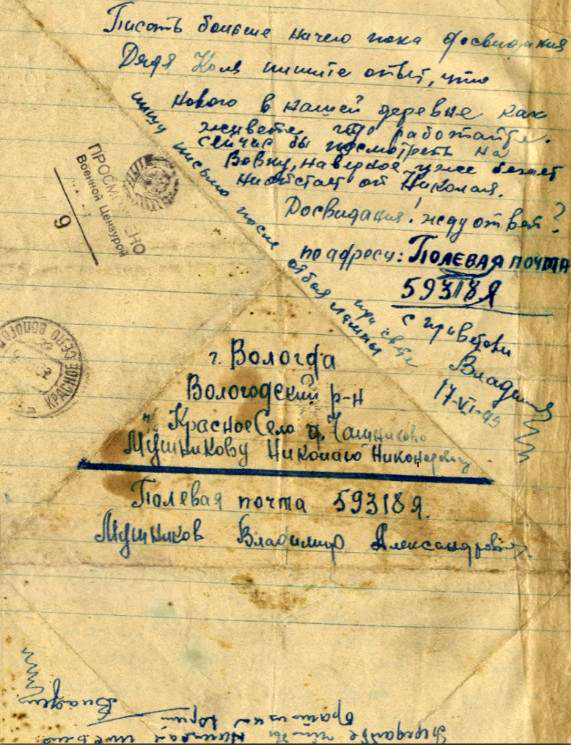 Писать больше нечего пока досвидания
Дядя Коля пишите ответ, что
нового в нашей деревне как
живете где работайте.
сейчас бы посмотреть на
Вовку, наверное уже бежит
не отстает от Николая.
Досвидания! жду ответ?
по адресу: Полевая почта
59318Я
с приветом
Владимир
17-VI-45
пишу письмо после отбоя при свете лампы
ПРОСМОТРЕНО
Военной Цензурой
9
КРАСНОЕ СЕЛО ВОЛОГОД
г. Вологда
Вологодский р-н
п/о Красное Село д. Чашниково
Мушникову Николаю Никоноровичу
Полевая почта 59318Я.
Мушников Владимир Александрович.
Передайте чтобы написал письмо
братишка Юрий